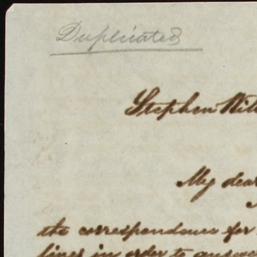 Duplicated
Stephen
My dear
the correspondence for
lines in order to answer